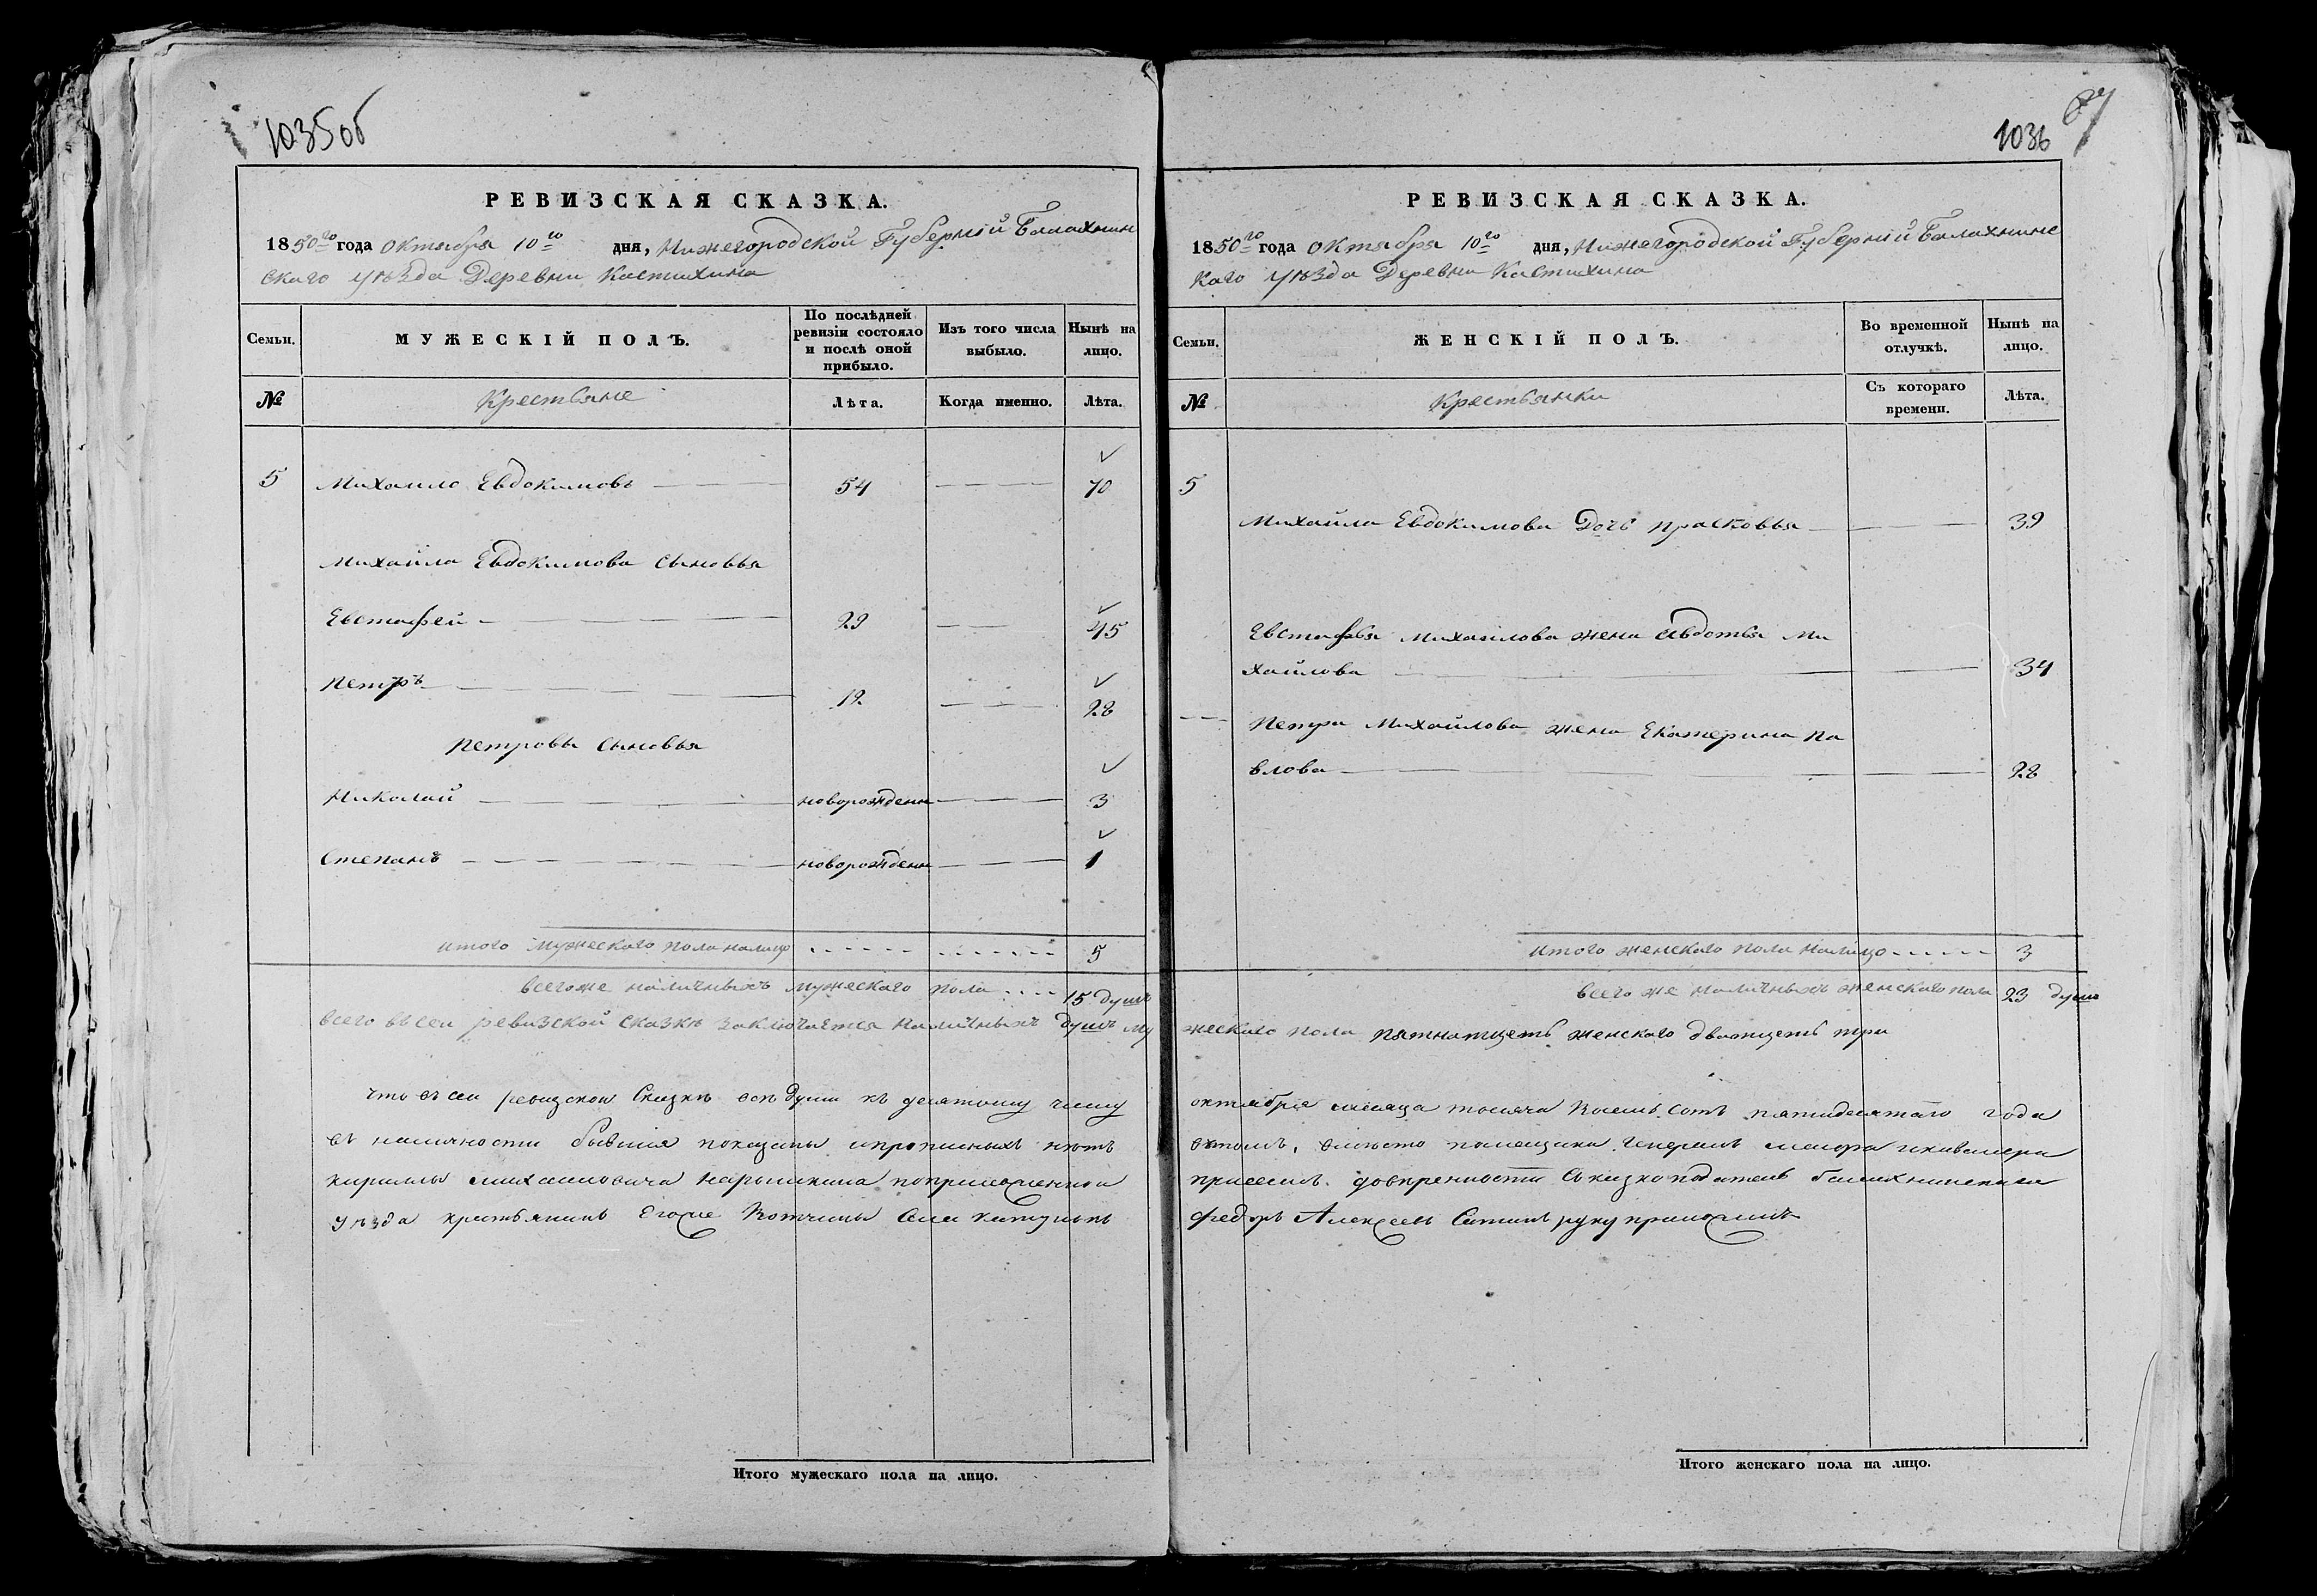 1035об
РЕВИЗСКАЯ СКАЗКА.
1850го года октября 10го дня, Нижегородской Губерніи Балахнин
скаго уѣзда Деревни Кастихина
Семьи.
МУЖЕСКІЙ ПОЛЪ.
По послѣдней ревизіи состояло и послѣ оной прибыло.
Изъ того числа выбыло.
Нынѣ на лицо.
№
Крестьяне
Лѣта.
Когда именно.
Лѣта.
5 Михаило Евдокимовъ 54 70
Михаила Евдокимова сыновья
Евстафей 29 45
Петръ 12 28
Петровы сыновья
Николай новорожден 3
Степанъ новорожден 1
итого мужескаго пола налицо 5
всегоже наличныхъ мужескаго пола 15 душъ
всего в сеи ревизской сказкѣ заключается наличныхъ душъ му
что въ сеи ревизской сказкѣ всѣ души къ десятому числу
въ наличности бывшия показаны и прописныхъ нѣтъ
кирилы михаиловича нарышкина по приложенной
уѣзда крестьянинъ егоже вотчины села катунокъ
Итого мужескаго пола на лицо.
1036
67
РЕВИЗСКАЯ СКАЗКА.
1850го года октября 10го дня, Нижегородской Губерніи Балахнинс
каго уѣзда Деревни Кастихина
Семьи.
ЖЕНСКІЙ ПОЛЪ.
Во временной отлучкѣ.
Нынѣ на лицо.
№
Крестьянки
Съ котораго времени.
Лѣта.
5
Михайла Евдокимова Дочь прасковья 39
Евстафья Михаилова жена авдотья Ми
хайлова 34
Петра Михайлова жена Екатерина Па
влова 28
итого женскаго пола налицо 3
всего же наличныхъ женскаго пола 23 душъ
жескаго пола пятнатцеть женскаго дватцеть три
октября месяца тысяча восемь сотъ пятидесятаго года
вътомъ, вместо помещика генералъ маиора икавалера
присемъ довѣренности сказкоподатель балахнинскаго
федоръ Алексеевъ руку приложилъ
Итого женскаго пола на лицо.